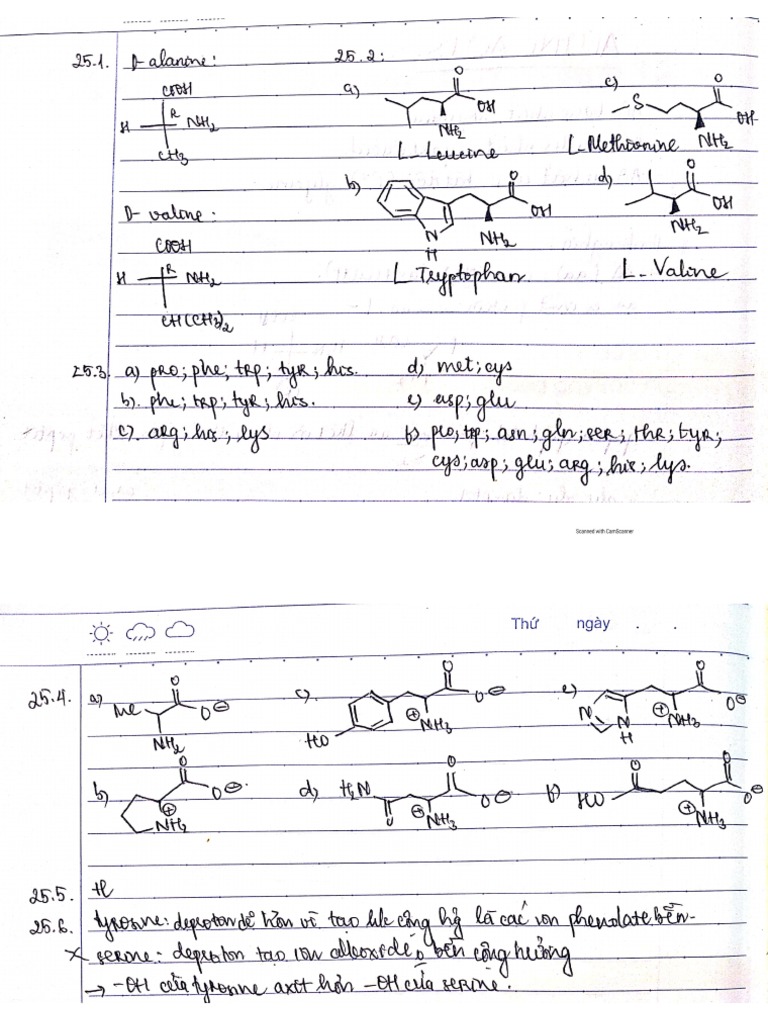 25.1. D-alanine: 25.2:
COOH
H R NH₂
CH₃
a) O OH NH₂
L-Leucine
c) S O OH NH₂
L-Methionine
D-valine:
COOH
H R NH₂
CH(CH₃)₂
b) O OH NH₂ N H
L Tryptophan
d) O OH NH₂
L-Valine
25.3. a) pro; phe; trp; tyr; his. d) met; cys
b). phe; trp; tyr; his. e) asp; glu
c). arg; his; lys f) pro; trp; asn; gln; ser; thr; tyr;
cys; asp; glu; arg; his; lys.
Scanned with CamScanner
Thứ ngày . .
25.4. a) Me O O⊖ NH₂
c). O O⊖ ⊕NH₃ HO
e) O O⊖ N N H ⊕NH₃
b) O O⊖ ⊕ NH₂
d) H₂N O O O⊖ ⊕NH₃
f) HO O O O⊖ ⊕NH₃
25.5.
25.6. tyrosine: deproton dễ hơn vì tạo lk cộng hg là các ion phenolate bền-
serine: deproton tạo ion alcoxide bền cộng hưởng
→ -OH của tyrosine axit hơn -OH của serine.